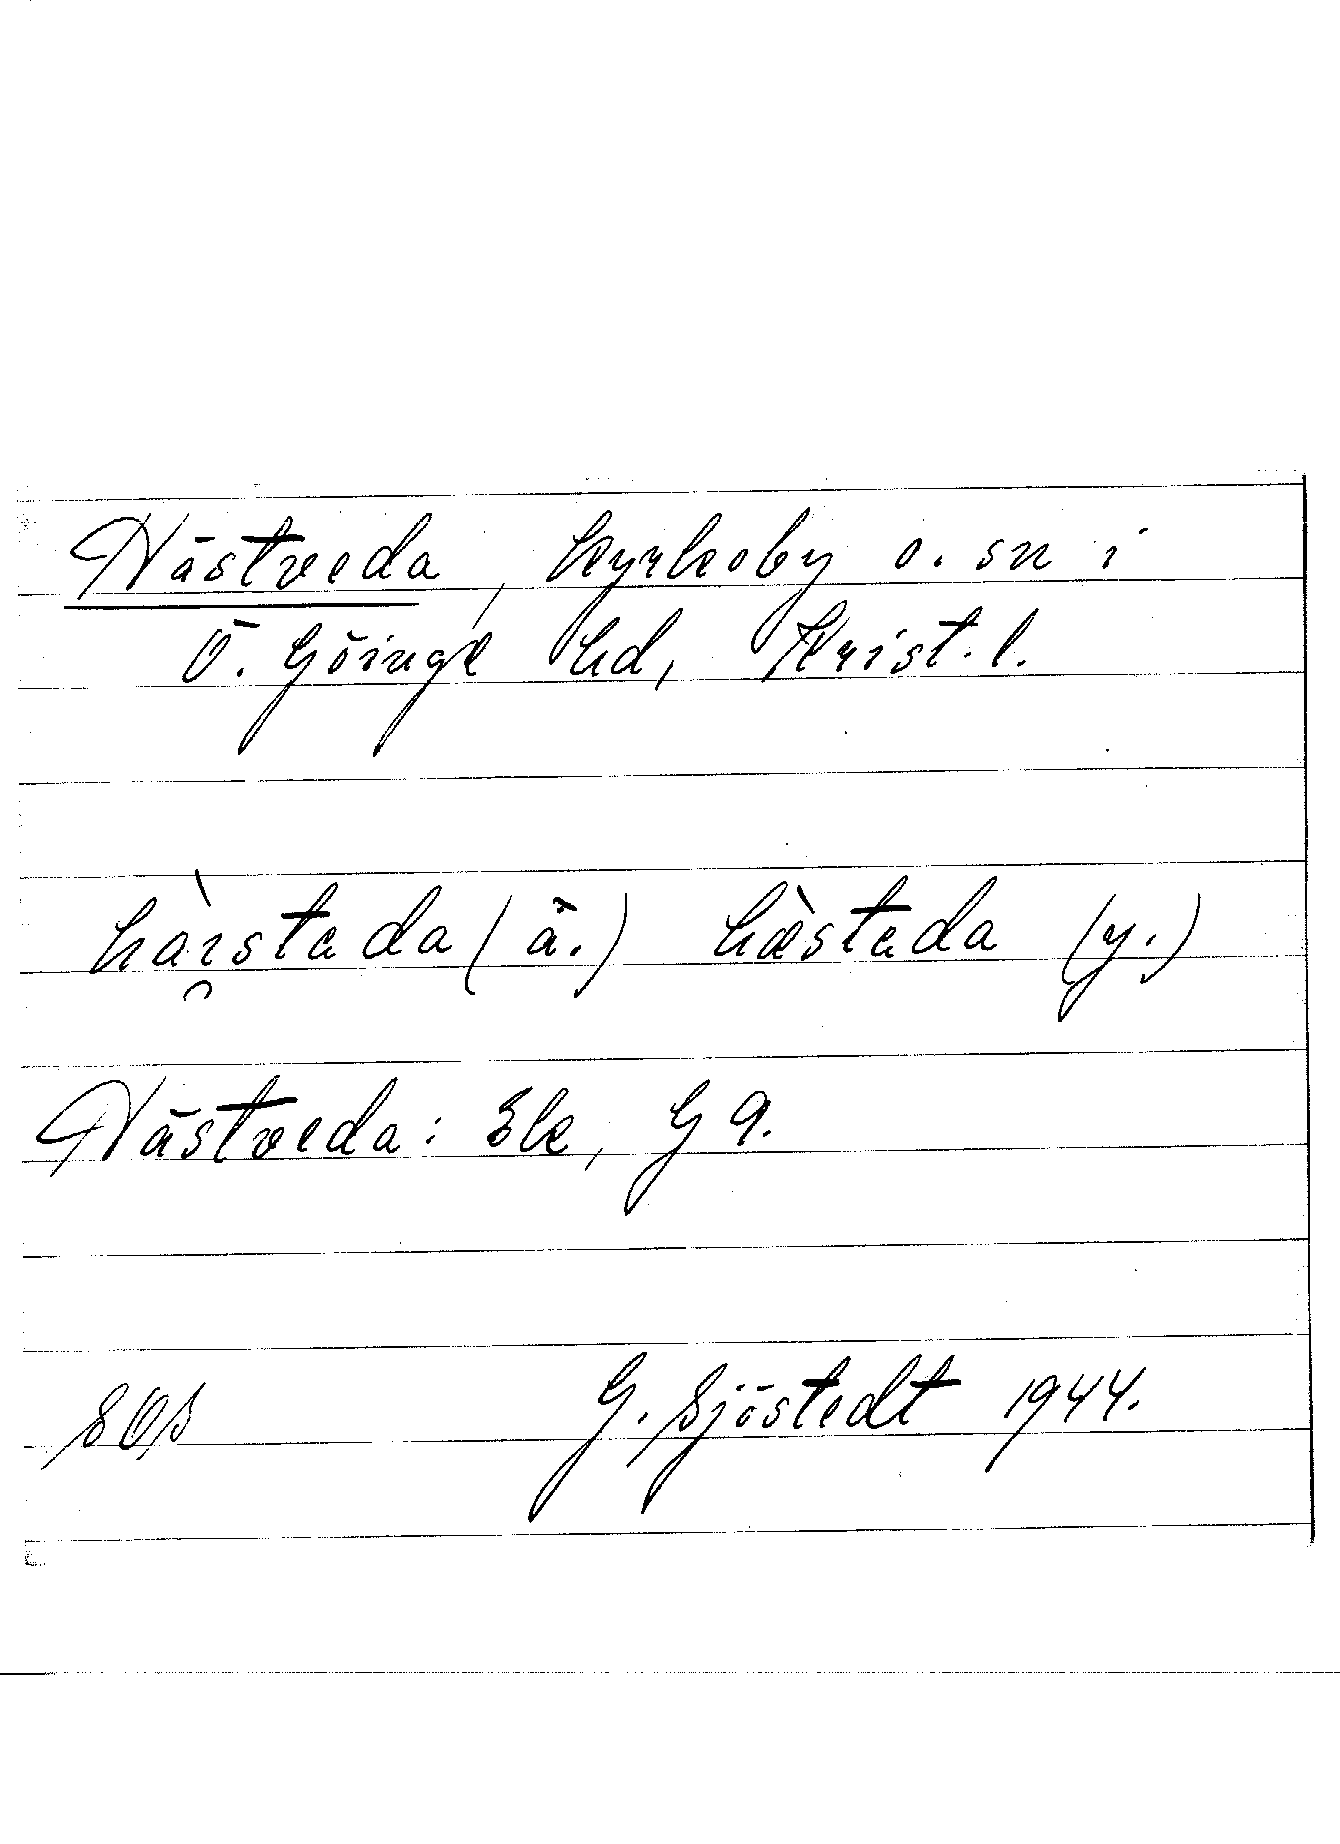 Hästveda, kyrkoby o. sn i
Ö. Göinge hd, Krist. l.
hàı̯stada (ä.) hæ̀stada (y.)
Hästveda: Ek, G 9.
SOS G. Sjöstedt 1944.